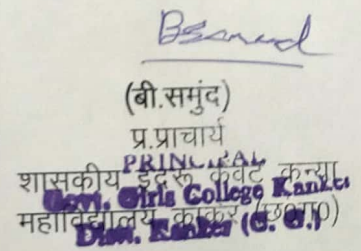 Bsamund
(बी.समुंद)
प्र.प्राचार्य
PRINCIPAL
शासकीय इंदरू केंवट कन्या
Govt. Girls College Kanker
महाविद्यालय कांकेर (छ0ग0)
Distt. Kanker (C. G.)